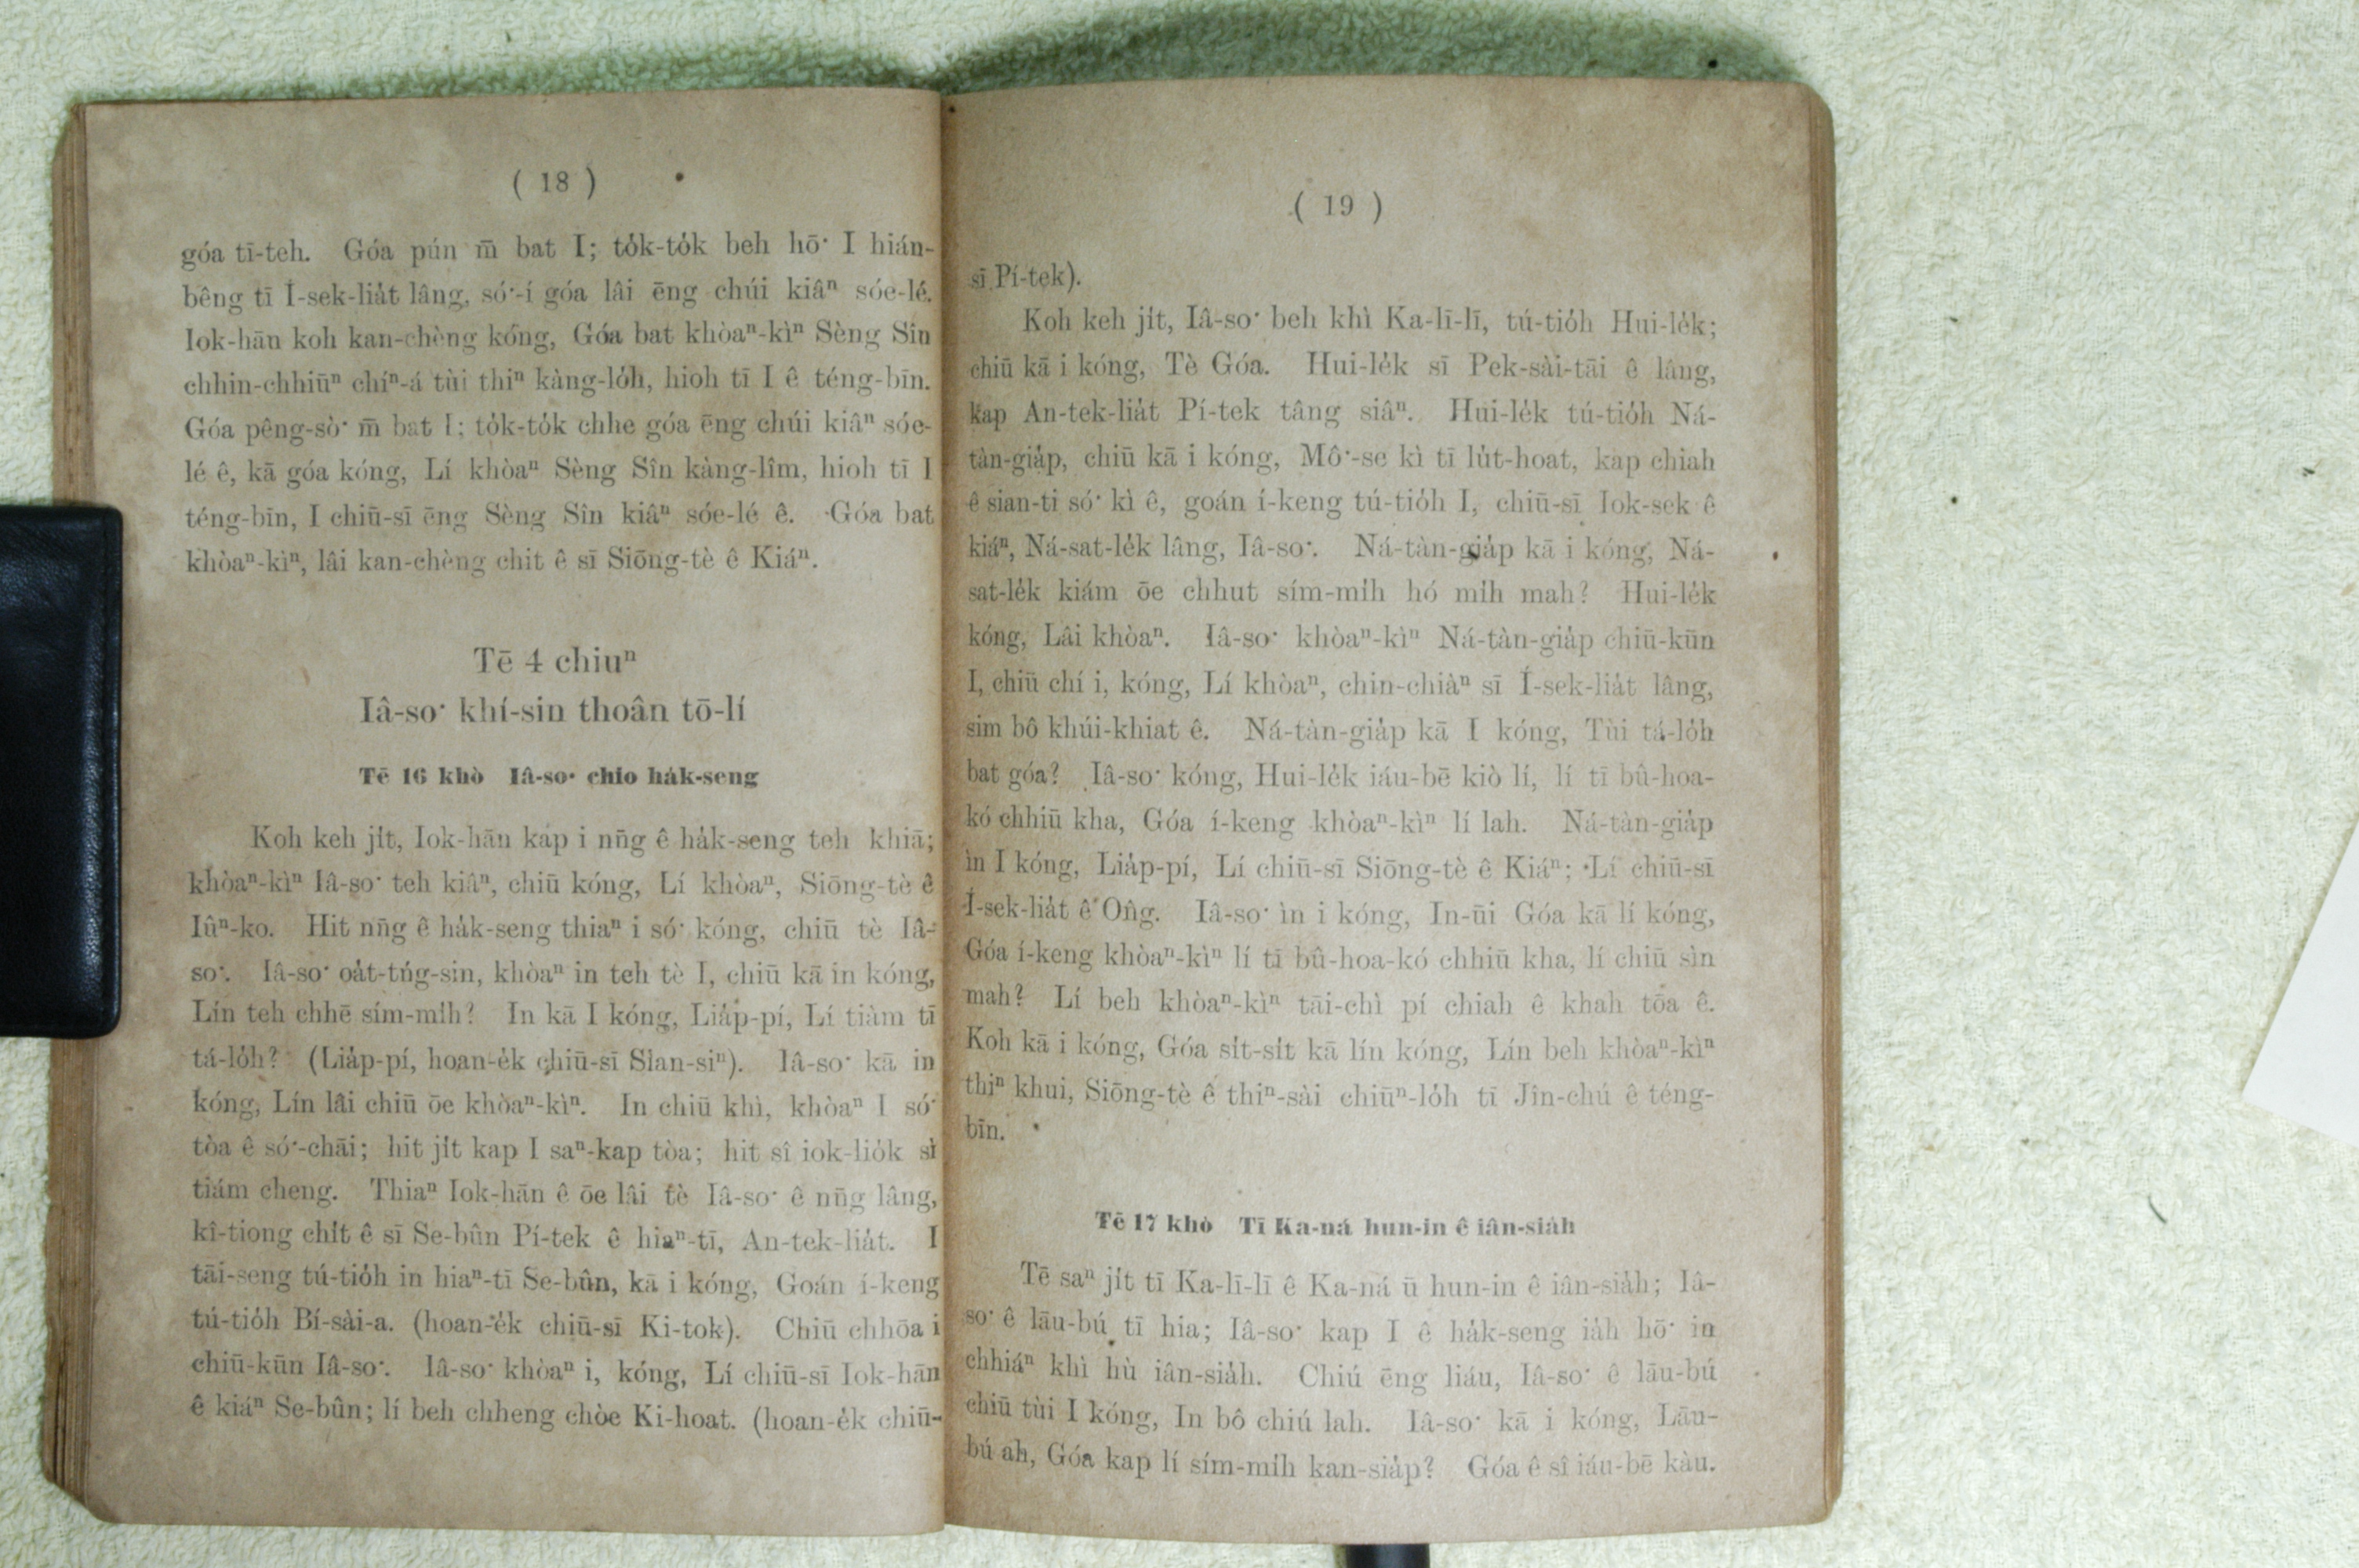 ( 18 )
góa tī-teh. Góa pún m̄ bat I; to̍k-to̍k beh hō͘ I hián-
bêng tī Í-sek-lia̍t lâng, só͘-í góa lâi ēng chúi kiâⁿ sóe-lé.
Iok-hān koh kan-chèng kóng, Góa bat khòaⁿ-kìⁿ Sèng Sîn
chhin-chhiūⁿ chíⁿ-á tùi thiⁿ kàng-lo̍h, hioh tī I ê téng-bīn.
Góa pêng-sò͘ m̄ bat I; to̍k-to̍k chhe góa ēng chúi kiâⁿ sóe-
lé ê, kā góa kóng, Lí khòaⁿ Sèng Sîn kàng-lîm, hioh tī I
téng-bīn, I chiū-sī ēng Sèng Sîn kiâⁿ sóe-lé ê. Góa bat
khòaⁿ-kìⁿ, lâi kan-chèng chit ê sī Siōng-tè ê Kiáⁿ.
Tē 4 chiuⁿ
Iâ-so͘ khí-sin thoân tō-lí
Tē 16 khò Iâ-so͘ chio ha̍k-seng
Koh keh ji̍t, Iok-hān kap i nn̄g ê ha̍k-seng teh khiā;
khòaⁿ-kìⁿ Iâ-so͘ teh kiâⁿ, chiū kóng, Lí khòaⁿ, Siōng-tè ê
Iûⁿ-ko. Hit nn̄g ê ha̍k-seng thiaⁿ i só͘ kóng, chiū tè Iâ-
so͘. Iâ-so͘ oa̍t-tńg-sin, khòaⁿ in teh tè I, chiū kā in kóng,
Lín teh chhē sím-mi̍h? In kā I kóng, Lia̍p-pí, Lí tiàm tī
tá-lo̍h? (Lia̍p-pí, hoan-e̍k chiū-sī Sian-siⁿ). Iâ-so͘ kā in
kóng, Lín lâi chiū ōe khòaⁿ-kìⁿ. In chiū khì, khòaⁿ I só͘
tòa ê só͘-chāi; hit ji̍t kap I saⁿ-kap tòa; hit sî iok-lio̍k sì
tiám cheng. Thiaⁿ Iok-hān ê ōe lâi tè Iâ-so͘ ê nn̄g lâng,
kî-tiong chi̍t ê sī Se-bûn Pí-tek ê hiaⁿ-tī, An-tek-lia̍t. I
tāi-seng tú-tio̍h in hiaⁿ-tī Se-bûn, kā i kóng, Goán í-keng
tú-tio̍h Bí-sài-a. (hoan-e̍k chiū-sī Ki-tok). Chiū chhōa i
chiū-kūn Iâ-so͘. Iâ-so͘ khòaⁿ i, kóng, Lí chiū-sī Iok-hān
ê kiáⁿ Se-bûn; lí beh chheng chòe Ki-hoat. (hoan-e̍k chiū-
( 19 )
sī Pí-tek).
Koh keh ji̍t, Iâ-so͘ beh khì Ka-lī-lī, tú-tio̍h Hui-le̍k;
chiū kā i kóng, Tè Góa. Hui-le̍k sī Pek-sài-tāi ê lâng,
kap An-tek-lia̍t Pí-tek tâng siâⁿ. Hui-le̍k tú-tio̍h Ná-
tàn-gia̍p, chiū kā i kóng, Mô͘-se kì tī lu̍t-hoat, kap chiah
ê sian-ti só͘ kì ê, goán í-keng tú-tio̍h I, chiū-sī Iok-sek ê
kiáⁿ, Ná-sat-le̍k lâng, Iâ-so͘. Ná-tàn-gia̍p kā i kóng, Ná-
sat-le̍k kiám ōe chhut sím-mi̍h hó mi̍h mah? Hui-le̍k
kóng, Lâi khòaⁿ. Iâ-so͘ khòaⁿ-kìⁿ Ná-tàn-gia̍p chiū-kūn
I, chiū chí i, kóng, Lí khòaⁿ, chin-chiàⁿ sī Í-sek-lia̍t lâng,
sim bô khúi-khiat ê. Ná-tàn-gia̍p kā I kóng, Tùi tá-lo̍h
bat góa? Iâ-so͘ kóng, Hui-le̍k iáu-bē kiò lí, lí tī bû-hoa-
kó chhiū kha, Góa í-keng khòaⁿ-kìⁿ lí lah. Ná-tàn-gia̍p
ìn I kóng, Lia̍p-pí, Lí chiū-sī Siōng-tè ê Kiáⁿ; Lí chiū-sī
Í-sek-lia̍t ê Ông. Iâ-so͘ ìn i kóng, In-ūi Góa kā lí kóng,
Góa í-keng khòaⁿ-kìⁿ lí tī bû-hoa-kó chhiū kha, lí chiū sìn
mah? Lí beh khòaⁿ-kìⁿ tāi-chì pí chiah ê khah tōa ê.
Koh kā i kóng, Góa si̍t-si̍t kā lín kóng, Lín beh khòaⁿ-kìⁿ
thiⁿ khui, Siōng-tè ê thiⁿ-sài chiūⁿ-lo̍h tī Jîn-chú ê téng-
bīn.
Tē 17 khò Tī Ka-ná hun-in ê iân-sia̍h
Tē saⁿ ji̍t tī Ka-lī-lī ê Ka-ná ū hun-in ê iân-sia̍h; Iâ-
so͘ ê lāu-bú tī hia; Iâ-so͘ kap I ê ha̍k-seng ia̍h hō͘ in
chhiáⁿ khì hù iân-sia̍h. Chiú ēng liáu, Iâ-so͘ ê lāu-bú
chiū tùi I kóng, In bô chiú lah. Iâ-so͘ kā i kóng, Lāu-
bú ah, Góa kap lí sím-mi̍h kan-sia̍p? Góa ê sî iáu-bē kàu.